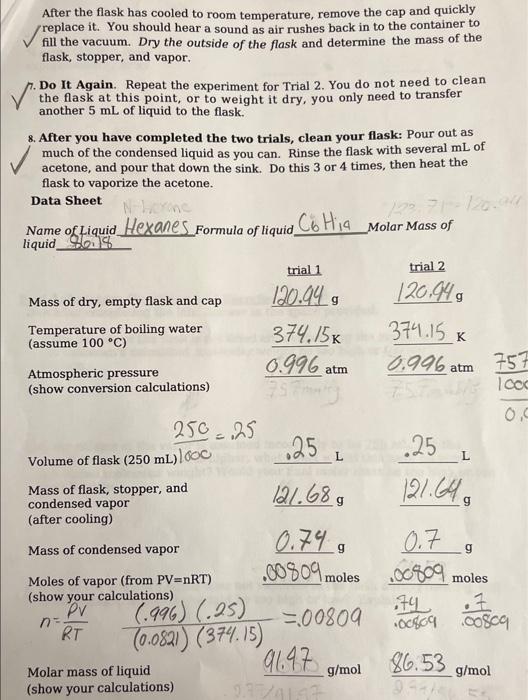 After the flask has cooled to room temperature, remove the cap and quickly
replace it. You should hear a sound as air rushes back in to the container to
fill the vacuum. Dry the outside of the flask and determine the mass of the
flask, stopper, and vapor.
7. Do It Again. Repeat the experiment for Trial 2. You do not need to clean
the flask at this point, or to weight it dry, you only need to transfer
another 5 mL of liquid to the flask.
8. After you have completed the two trials, clean your flask: Pour out as
much of the condensed liquid as you can. Rinse the flask with several mL of
acetone, and pour that down the sink. Do this 3 or 4 times, then heat the
flask to vaporize the acetone.
Data Sheet
N-hexane
Name of Liquid Hexanes Formula of liquid C6H14 Molar Mass of
liquid 86.18
trial 1 trial 2
Mass of dry, empty flask and cap 120.94 g 120.94 g
Temperature of boiling water 374.15 K 374.15 K
(assume 100 °C)
Atmospheric pressure 0.996 atm 0.996 atm 757
(show conversion calculations) 757mmHg
250/1000 = .25
Volume of flask (250 mL) .25 L .25 L
Mass of flask, stopper, and 121.68 g 121.64 g
condensed vapor
(after cooling)
Mass of condensed vapor 0.74 g 0.7 g
Moles of vapor (from PV=nRT) .00809 moles .00809 moles
(show your calculations)
n = PV/RT (.996)(.25)/(0.0821)(374.15) = .00809 .74/.00809 .7/.00809
Molar mass of liquid 91.47 g/mol 86.53 g/mol
(show your calculations)